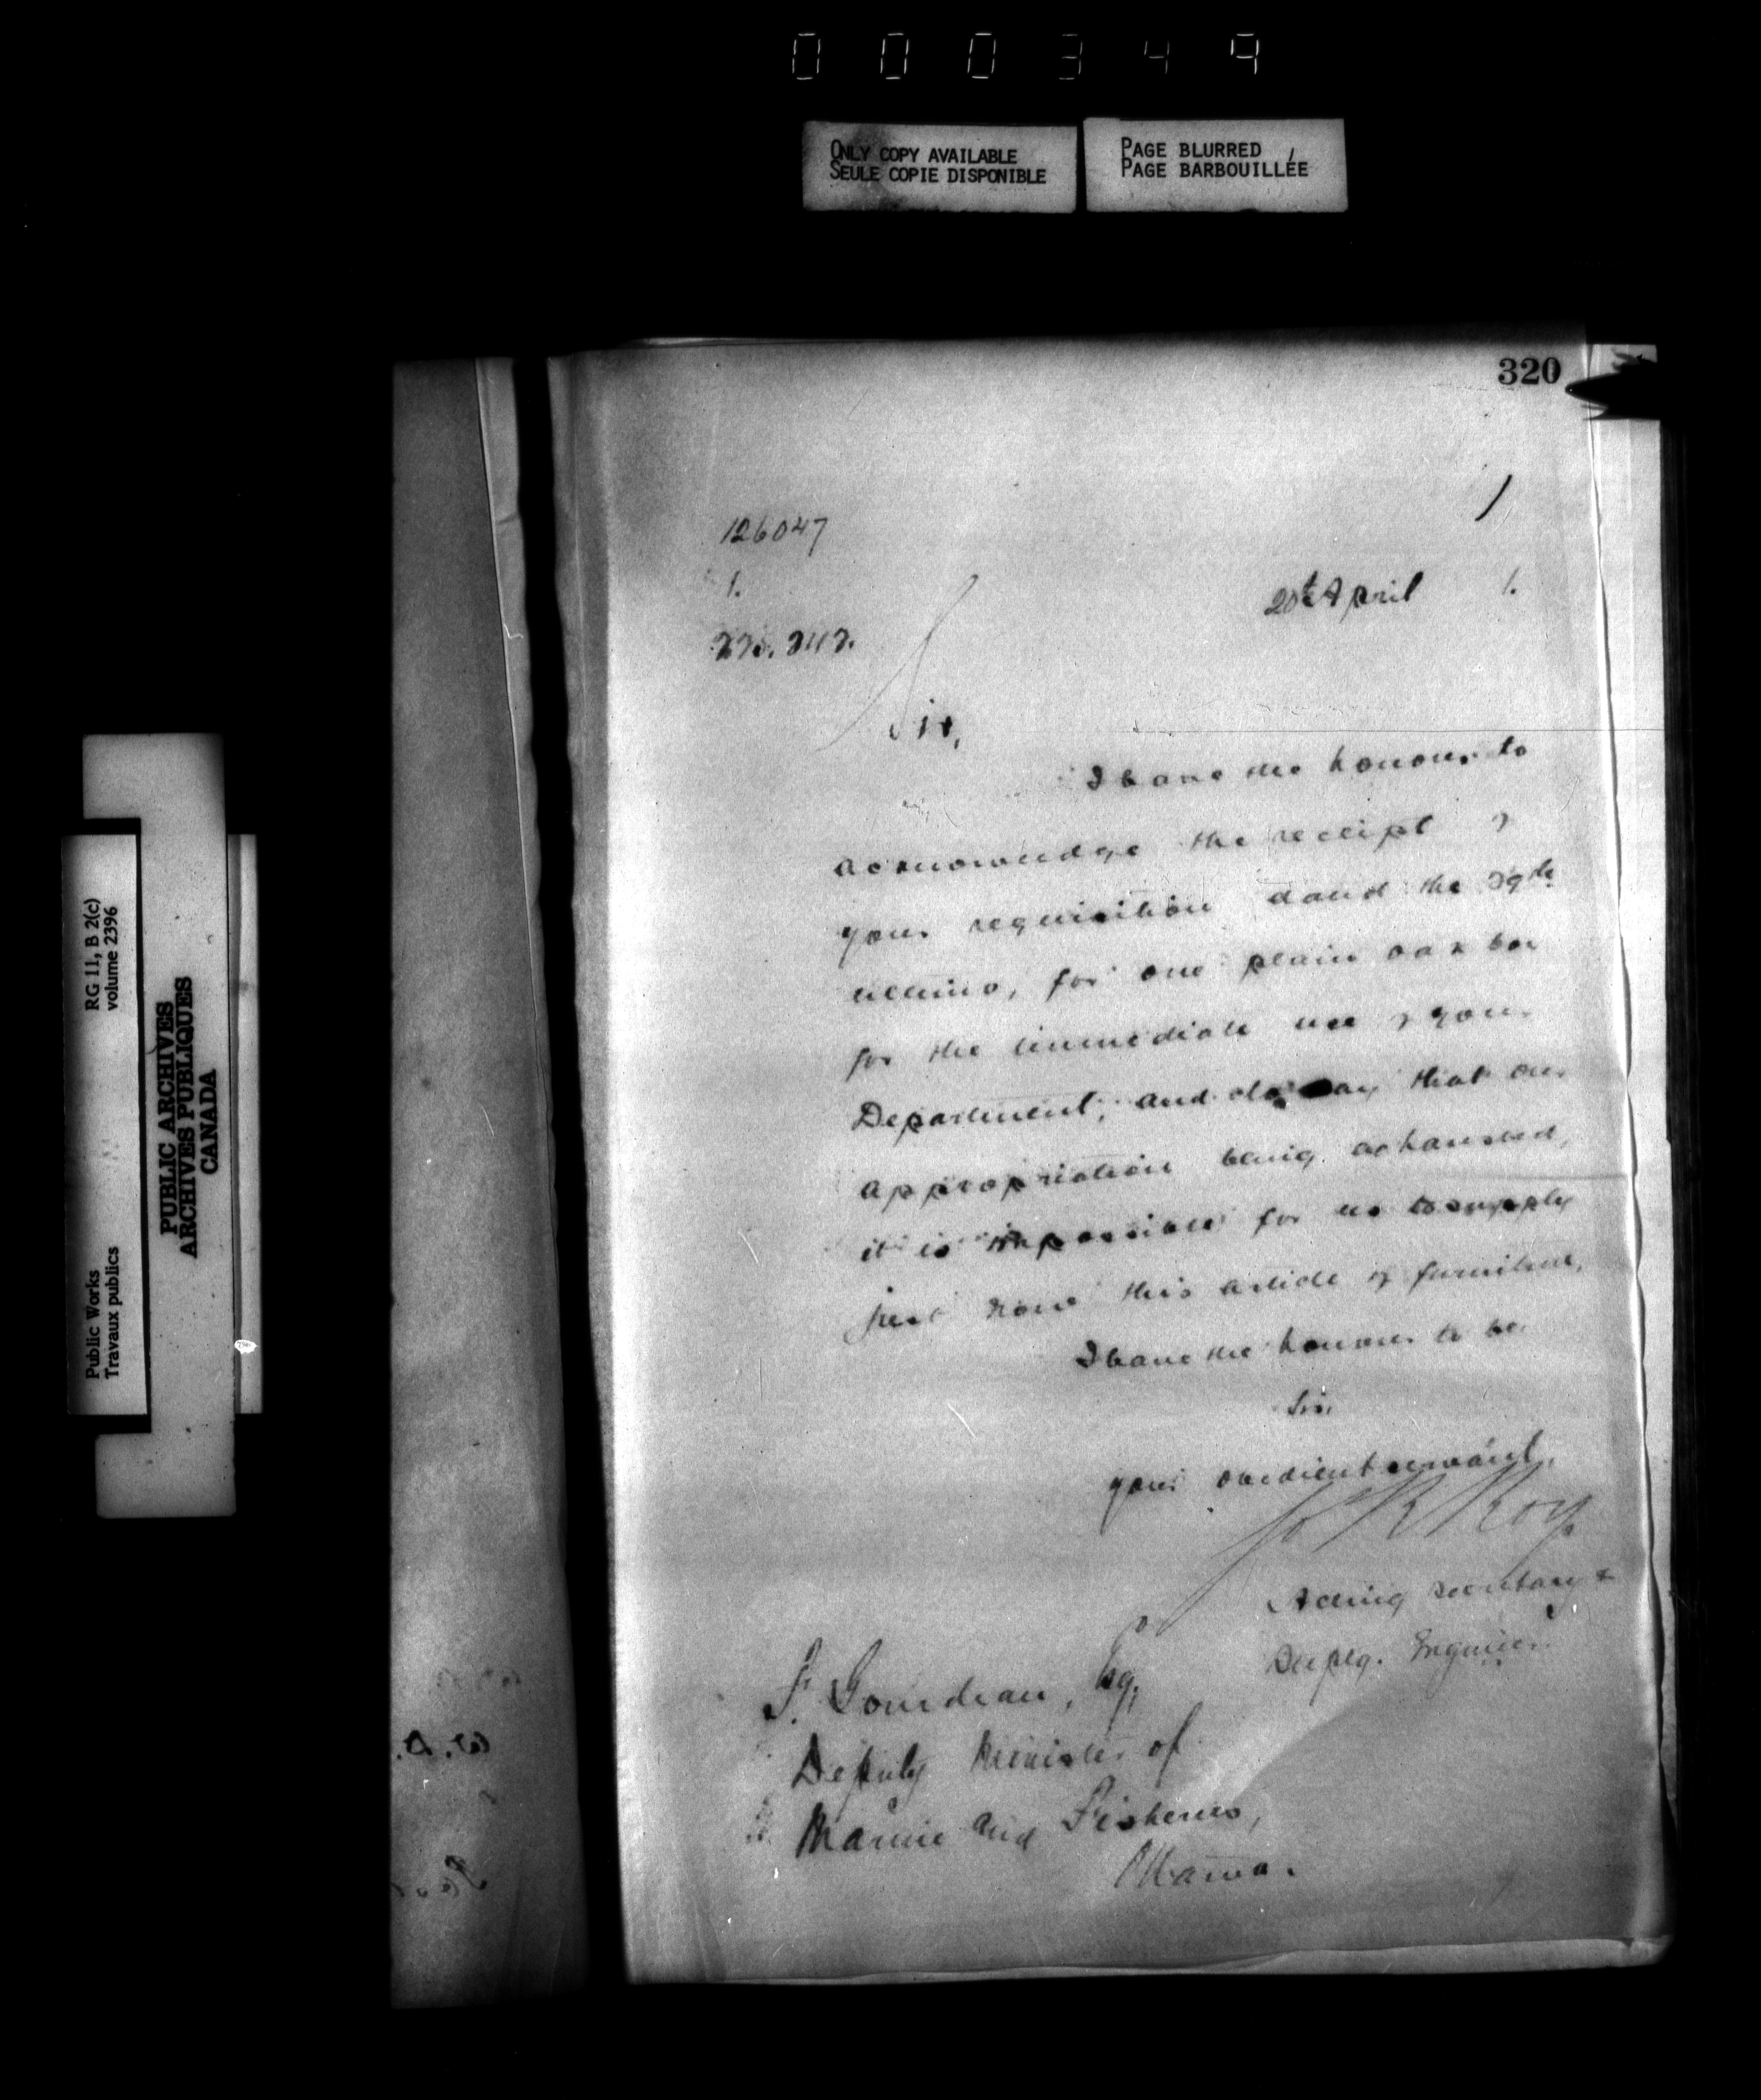 000349
ONLY COPY AVAILABLE
SEULE COPIE DISPONIBLE
PAGE BLURRED
PAGE BARBOUILLÉE
320
126047
1.
20th April 1.
Sir,
I have the honour to
acknowledge the receipt of
your requisition dated the
ultimo, for one plain oak box
for the immediate use of your
Department, and to say that our
appropriation being exhausted,
it is impossible for us to supply
just now this article of furniture.
I have the honour to be
Sir,
your obedient servant,
Jos R Roy
Acting Secretary &
Depty. Engineer.
F. Gourdeau, Esq,
Deputy Minister of
Marine and Fisheries,
Ottawa.
Public Works
Travaux publics
RG 11, B 2(c)
volume 2396
PUBLIC ARCHIVES
ARCHIVES PUBLIQUES
CANADA